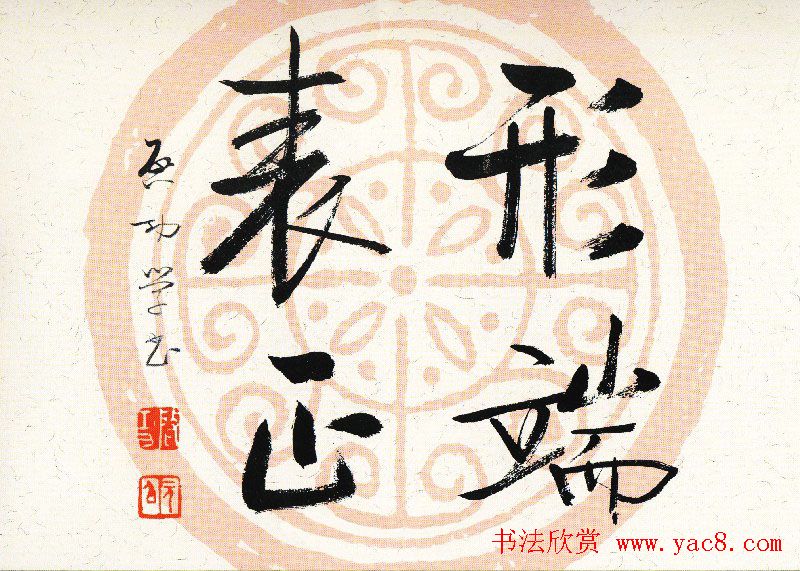 形端
表正
启功学书
启功
元白
书法欣赏 www.yac8.com